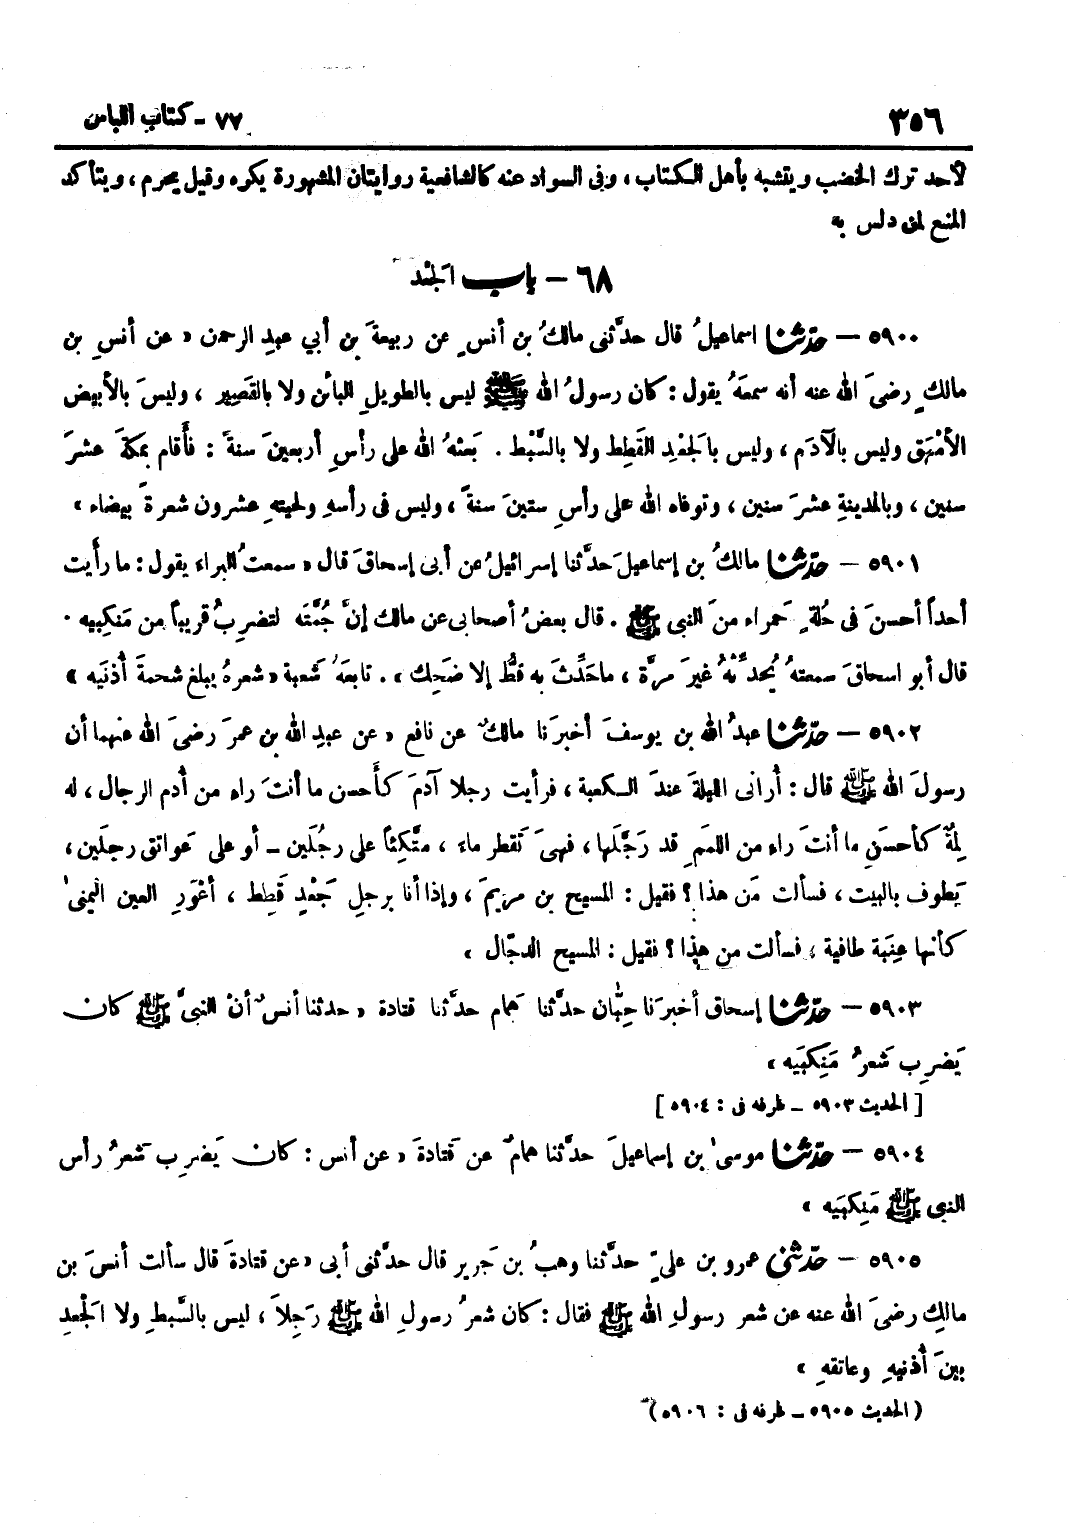 ٣٥٦
٧٧ - كتاب اللباس
لأحد ترك الخضب ويتشبه بأهل الكتاب ، وفى السواد عنه كالشافعية روايتان المشهورة يكره وقيل يحرم ، ويتأكد
المنع لمن دلس به
٦٨ - باب الجعد
٥٩٠٠ - حدّثنا اسماعيلُ قال حدَّثنى مالكُ بن أنسٍ عن ربيعةَ بن أبي عبدِ الرحمن « عن أنسِ بن
مالكٍ رضىَ الله عنه أنه سمعَهُ يقول : كان رسولُ الله ﷺ ليس بالطويلِ البائنِ ولا بالقَصِير ، وليسَ بالأبيض
الأمْهَق وليس بالآدَم ، وليس بالَجعْدِ القَطِط ولا بالسَّبْط . بَعثهُ الله على رأسِ أربعينَ سنةً : فأقام بمكةَ عشرَ
سنين ، وبالمدينةِ عشرَ سنين ، وتوفاه الله على رأسِ ستينَ سنةً ، وليس فى رأسهِ ولحيتهِ عشرون شعرةً بيضاء »
٥٩٠١ - حدّثنا مالكُ بن إسماعيلَ حدَّثنا إسرائيلُ عن أبى إسحاقَ قال « سمعتُ البراء يقول : ما رأَيت
أحداً أحسنَ فى حُلةٍ حَمراء منَ النبى ﷺ . قال بعضُ أصحابى عن مالك إنَّ جُمَّتَه لتضرِبُ قريباً من مَنكِبيه .
قال أبو اسحاقَ سمعتهُ يُحدِّثهُ غيرَ مرَّة ، ماحَدَّثَ به قطُّ إلا ضَحِك » . تابعَهُ شعبة « شعرهُ يبلغ شحمةَ أُذنَيه »
٥٩٠٢ - حدّثنا عبدُ الله بن يوسفَ أخبرَنا مالكٌ عن نافع « عن عبدِ الله بن عمرَ رضىَ الله عنهما أن
رسولَ الله ﷺ قال : أُرانى الليلةَ عندَ الكعبة ، فرأيت رجلا آدَمَ كأَحسن ما أنتَ راءٍ من أُدم الرجال ، له
لِمةٌ كأحسَنِ ما أنتَ راءٍ من اللمَمِ قد رَجَّلها ، فهىَ تَقطر ماء ، متَّكِئاً على رجُلَين - أو على عَواتق رجلَين ،
يَطوف بالبيت ، فسألت مَن هذا ؟ فقيل : المسيح بن مريمَ ، وإذا أنا برجلٍ جَعْدٍ قَطِط ، أعْوَرِ العين اليمنىٰ
كأنها عِنَبة طافية ، فسألت من هذا ؟ فقيل : المسيح الدجّال »
٥٩٠٣ - حدّثنا إسحاق أخبرَنا حِبّان حدَّثنا هَمام حدَّثنا قتادة « حدثنا أنسٌ أنَّ النبىَّ ﷺ كان
يَضرِب شَعرهُ مَنكِبَيه »
[ الحديث ٥٩٠٣ - طرفه فى : ٥٩٠٤ ]
٥٩٠٤ - حدّثنا موسىٰ بن إسماعيلَ حدَّثنا همامٌ عن قتادةَ « عن أنس : كان يَضرِب شعرُ رأس
النبى ﷺ مَنكِبَيه »
٥٩٠٥ - حدّثنى عمرو بن علىٍّ حدَّثنا وهبُ بن جَرير قال حدَّثنى أبى « عن قتادةَ قال سألت أنسَ بن
مالكٍ رضىَ الله عنه عن شعر رسولِ الله ﷺ فقال : كان شعرُ رسولِ الله ﷺ رَجِلاً ، ليس بالسَّبطِ ولا الَجعدِ
بينَ أُذنيهِ وعاتقهِ »
( الحديث ٥٩٠٥ - طرفه فى : ٥٩٠٦ )